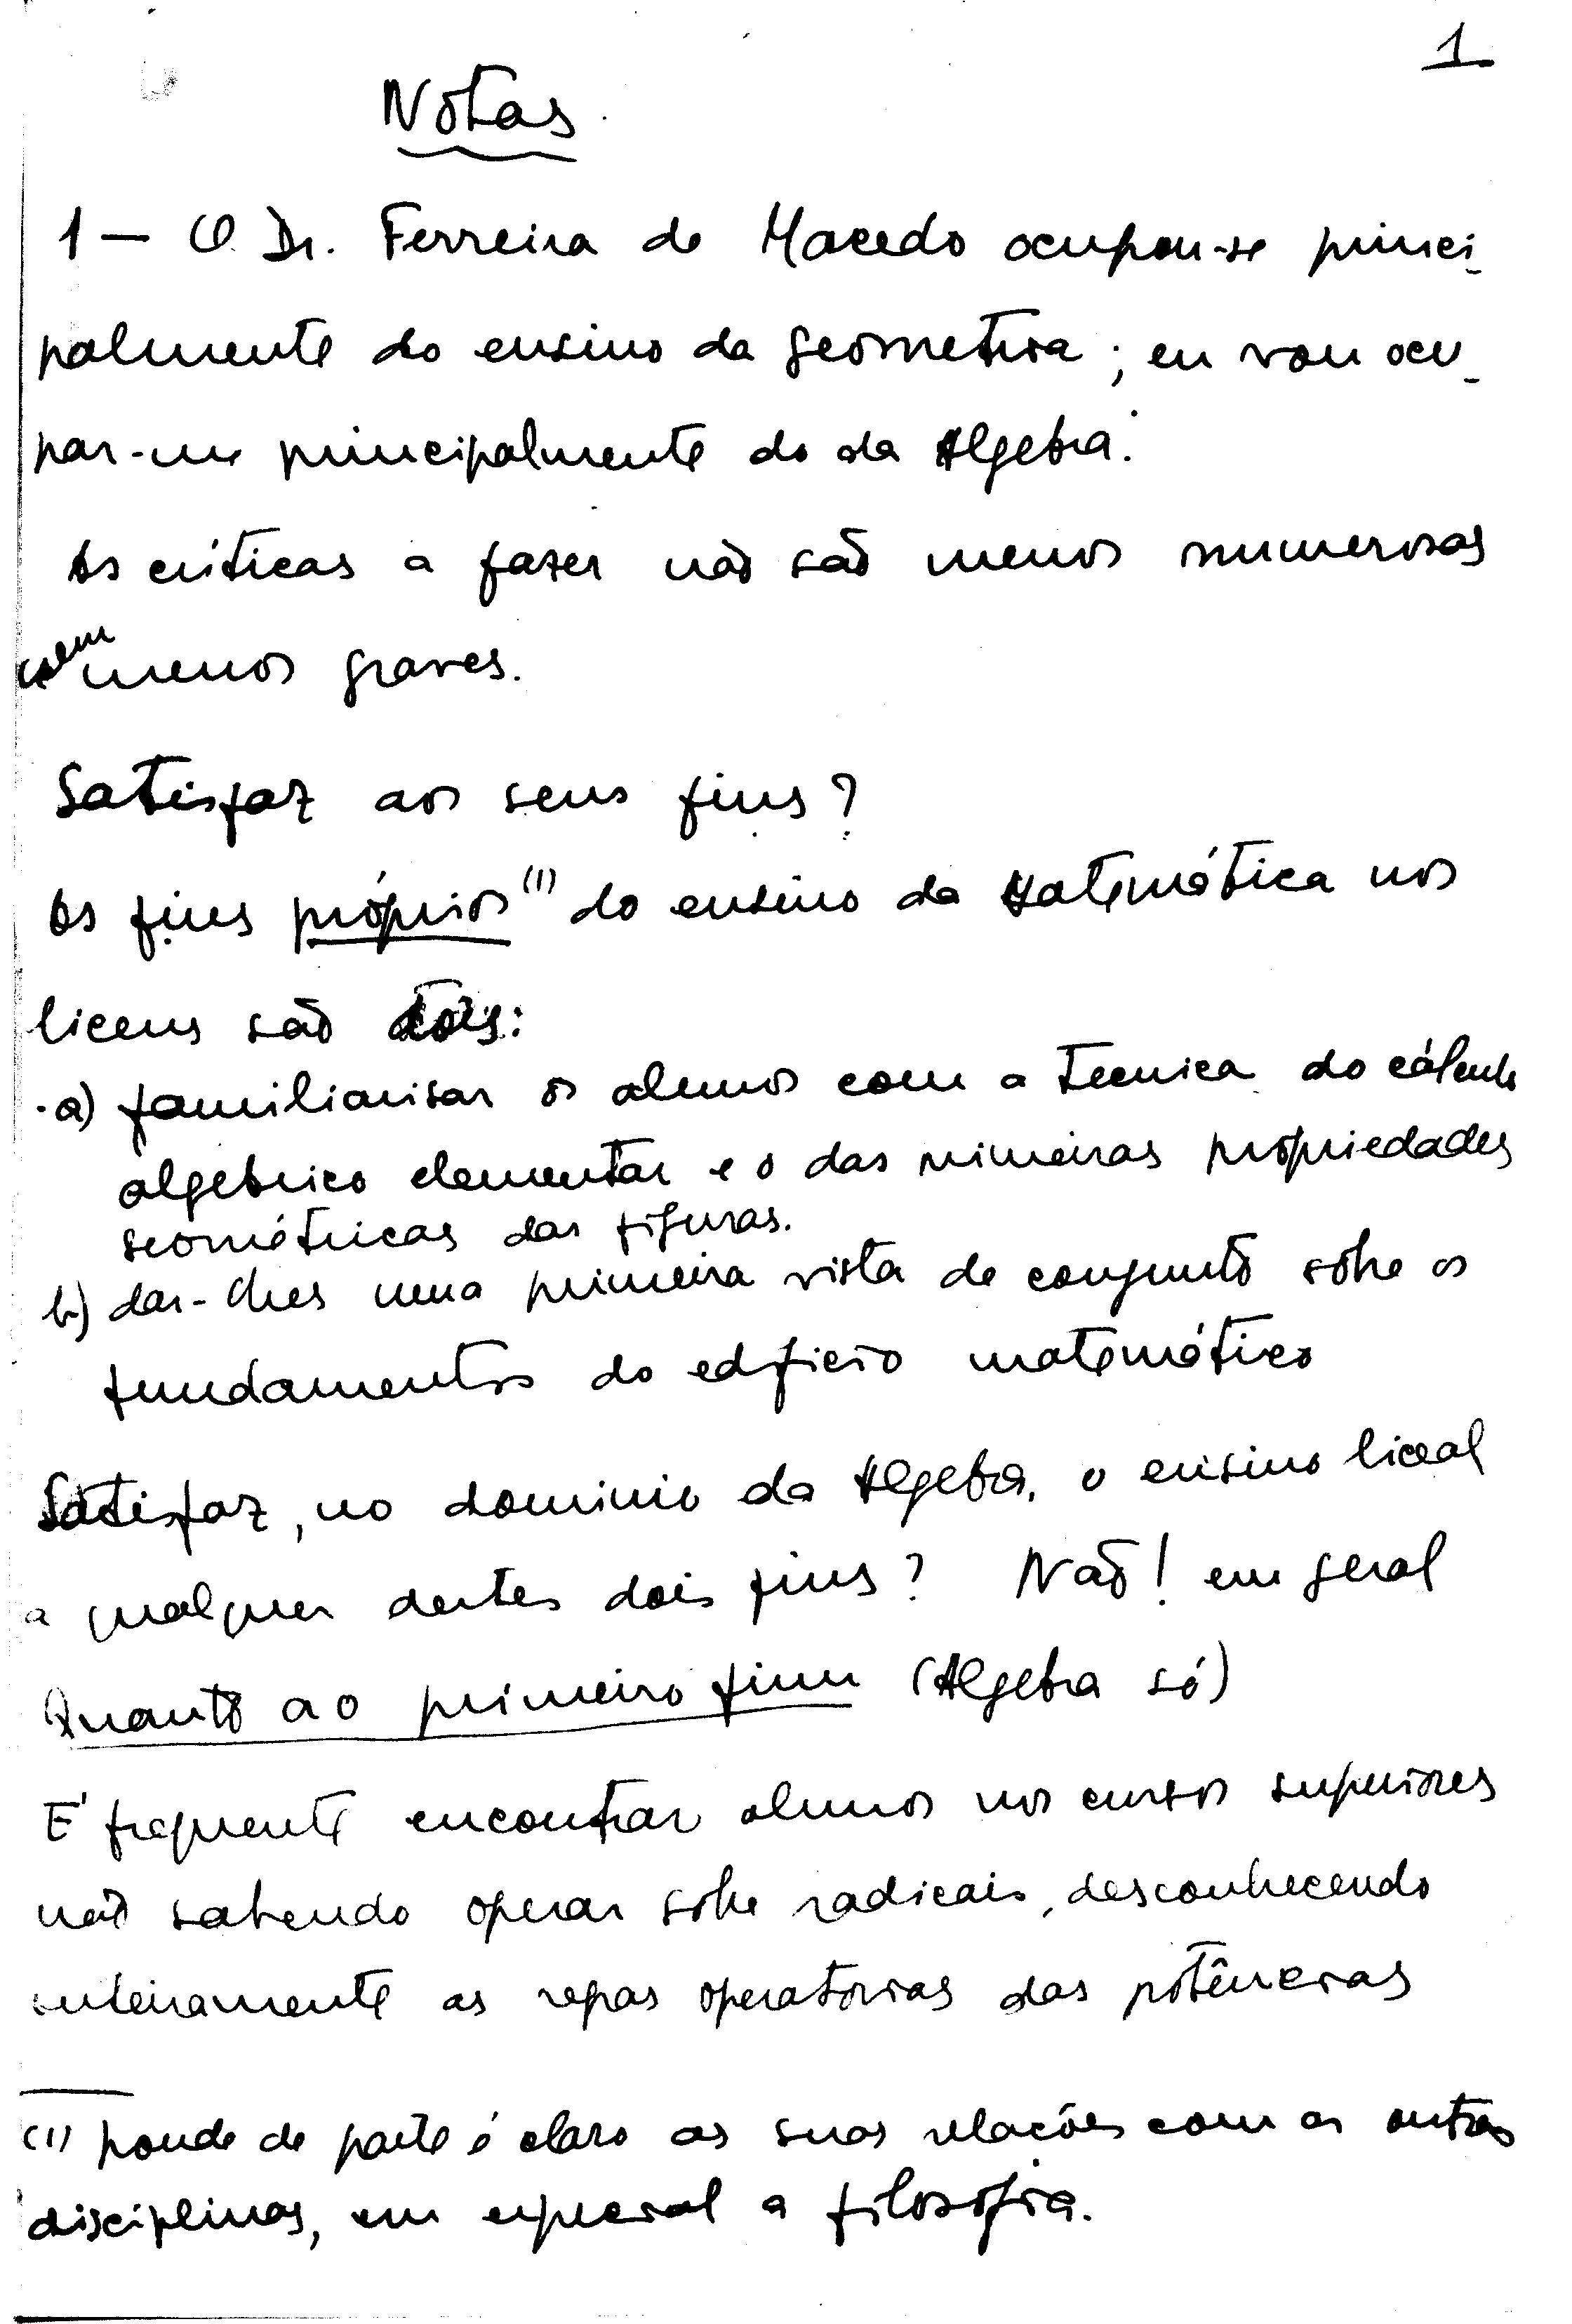 1
Notas
1 — O Dr. Ferreira de Macedo ocupou-se princi-
palmente do ensino da geometria; eu vou ocu-
par-me principalmente do da Algebra.
As críticas a fazer não são menos numerosas
nem menos graves.
Satisfaz aos seus fins?
Os fins próprios (1) do ensino da Matemática nos
liceus são dois:
a) familiarisar os alunos com a tecnica do cálculo
algebrico elementar e o das primeiras propriedades
geométricas das figuras.
b) dar-lhes uma primeira vista de conjunto sôbre os
fundamentos do edificio matemático
Satisfaz, no dominio da Algebra, o ensino liceal
a qualquer destes dois fins? Não! em geral
Quanto ao primeiro fim (Algebra só)
É frequente encontrar alunos nos cursos superiores
não sabendo operar sôbre radicais, desconhecendo
inteiramente as regras operatorias das potências
(1) pondo de parte é claro as suas relações com as outras
disciplinas, em especial a filosofia.